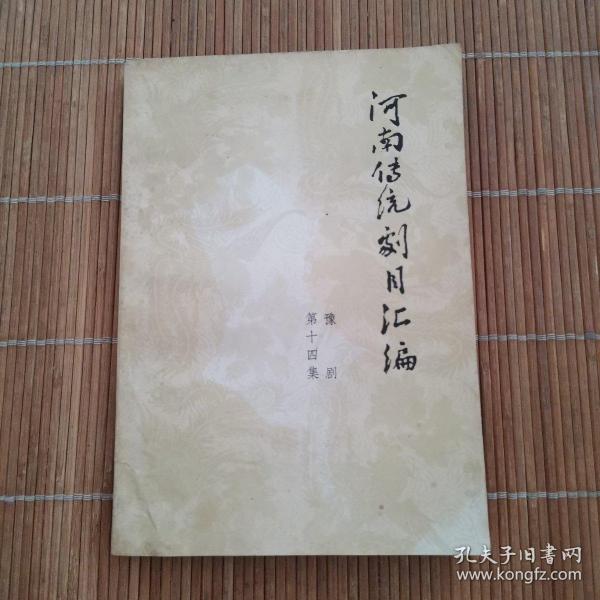 河南传统剧目汇编
豫剧
第十四集
孔夫子旧书网
www.kongfz.com